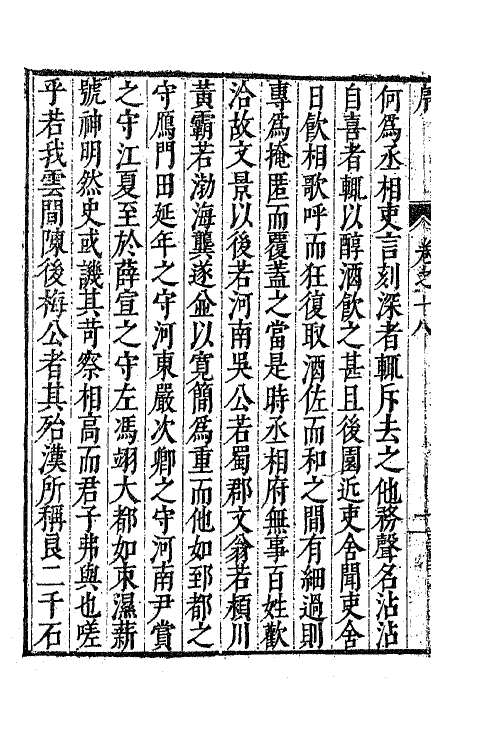 序
卷之十八
何爲丞相吏言刻深者輒斥去之他務聲名沾沾
自喜者輒以醇酒飲之甚且後園近吏舍聞吏舍
日飲相歌呼而狂復取酒佐而和之間有細過則
專爲掩匿而覆蓋之當是時丞相府無事百姓歡
洽故文景以後若河南吳公若蜀郡文翁若潁川
黃霸若渤海龔遂並以寬簡爲重而他如郅都之
守鴈門田延年之守河東嚴次卿之守河南尹賞
之守江夏至於薛宣之守左馮翊大都如束濕薪
號神明然史或譏其苛察相高而君子弗與也嗟
乎若我雲間陳後梅公者其殆漢所稱良二千石